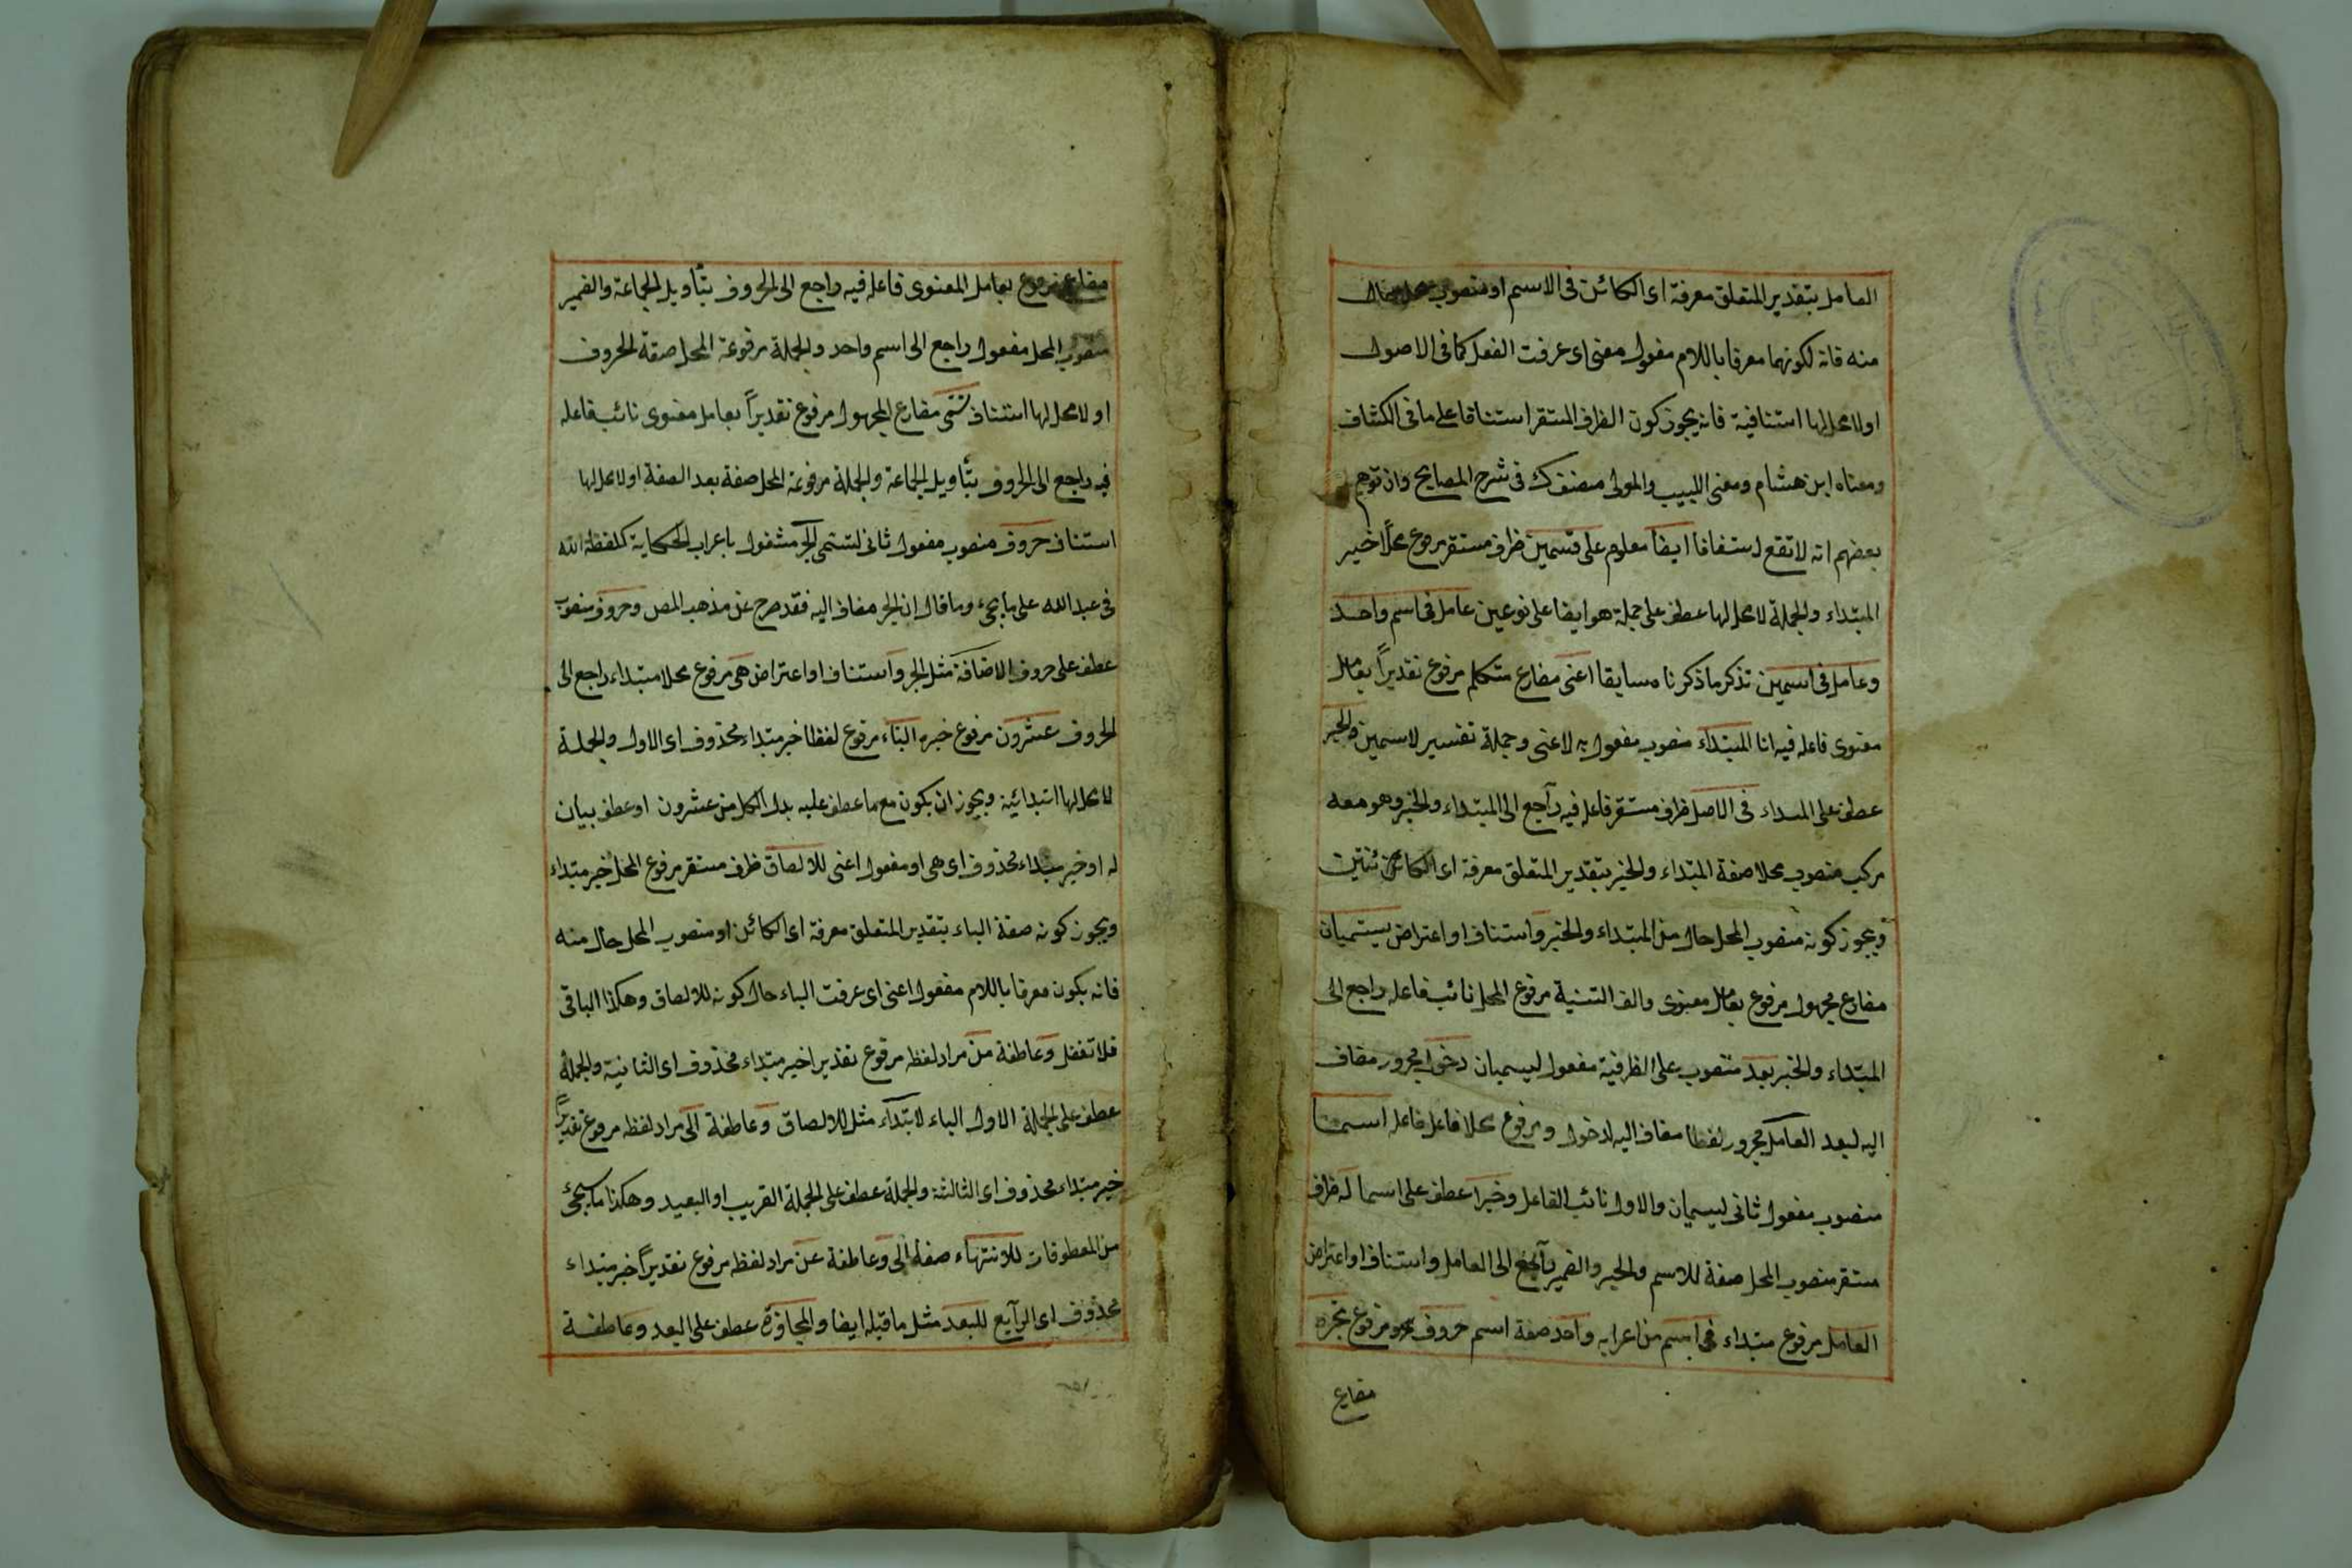 العامل بتقدير المتعلق معرفة اى الكائن فى الاسم او منصوب محل حال
منه فانه لكونهما معرفا باللام مفعول معنى اى عرفت الفعل كما فى الاصول
اولا محل لها استنافية فانه يجوز كون الظرف المستقر استنافا على ما فى الكشاف
ومعناه ابن هشام ومغنى اللبيب والمولى مصنفك فى شرح المصابح وان توهم
بعضهم انه لا تقع استفافا ايضا معلوم على قسمين ظرف مستقر مرفوع محلا خبر
المبتداء والجملة لا محل لها عطف على جملة هو ايضا على نوعين عامل فى اسم واحد
وعامل فى اسمين تذكر ما ذكرناه سابقا اعنى مضارع متكلم مرفوع تقديراً بعامل
معنوى فاعله فيه انا المبتداء منصوب مفعول به لاعنى وجملة تفسير لاسمين والخبر
عطف على المبداء فى الاصل ظرف مستقر فاعله فيه راجع الى المبتداء والخبر وهو معه
مركب منصوب محلا صفة المبتداء والخبر بتقدير المتعلق معرفة اى الكائن ئنتين
ويجوز كونه منصوب المحل حال من المبتداء والخبر واستناف او اعتراض يسميان
مضارع مجهول مرفوع بعامل معنوى والف التثنية مرفوع المحل نائب فاعله راجع الى
المبتداء والخبر بعد منصوب على الظرفية مفعول ليسميان دخول مجرور مضاف
اليه لبعد العامل مجرور لفظا مضاف اليه لدخول ومرفوع محلا فاعل فاعله اسما
منصوب مفعول ثانى ليسميان والاول نائب الفاعل وخبرا عطف على اسما له ظرف
مستقر منصوب المحل صفة للاسم والخبر والضمير راجع الى العامل واستناف او اعتراض
العامل مرفوع مبتداء فى اسم من اعرابه واحد صفة اسم حروف مرفوع تجره
مضارع
مضارع مرفوع بعامل المعنوى فاعله فيه راجع الى الحروف بتأويل الجماعة والضمير
منصوب المحل مفعول راجع الى اسم واحد والجملة مرفوعة المحل صفة الحروف
اولا محل لها استناف تسمى مضارع المجهول مرفوع تقديراً بعامل معنوى نائب فاعله
فيه راجع الى الحروف بتأويل الجماعة والجملة مرفوعة المحل صفة بعد الصفة اولا محل لها
استناف حروف منصوب مفعول ثانى لتسمى الجر مشغول باعراب الحكاية كلفظة الله
فى عبد الله على ما يجئ وما قال ان الجر مضاف اليه فقد صرح عن مذهب المص وحروف منصوب
عطف على حروف الاضافة مثل الجر واستناف او اعتراض هى مرفوع محلا مبتداء راجع الى
الحروف عشرون مرفوع خبره الباء مرفوع لفظا خبر مبتداء محذوف اى الاول والجملة
لا محل لها ابتدائية ويجوز ان يكون مع ما عطف عليه بدل الكل من عشرون او عطف بيان
له او خبر مبتداء محذوف اى هى او مفعول اعنى للالصاق ظرف مستقر مرفوع المحل خبر مبتداء
ويجوز كونه صفة الباء بتقدير المتعلق معرفة اى الكائن او منصوب المحل حال منه
فانه يكون معرفا باللام مفعول اعنى اى عرفت الباء حال كونه للالصاق وهكذا الباقى
فلا تغفل وعاطفة من مراد لفظه مرفوع تقديرا خبر مبتداء محذوف اى الثانية والجملة
عطف على الجملة الاول الباء لابتداء مثل للالصاق وعاطفة الى مراد لفظه مرفوع تقديراً
خبر مبتداء محذوف اى الثالثة والجملة عطف على الجملة القريب او البعيد وهكذا ما سيجئ
من المعطوفات للانتهاء صفة الى وعاطفة عن مراد لفظه مرفوع تقديراً خبر مبتداء
محذوف اى الرابع للبعد مثل ما قبله ايضا والمجاوزة عطف على البعد وعاطفة